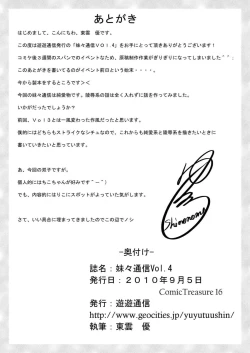 あとがき
はじめまして、こんにちわ、東雲 優です。
この度は遊遊通信発行の「妹々通信Vol.4」をお手にとって頂きありがとうございます！
コミケ後3週間のスパンでのイベントなため、原稿制作作業がぎりぎりになってしまいました
このあとがきを書いてるのがイベント前日という始末・・・・。
今から製本をするところです＞＜
今回の妹々通信は純愛物です。陵辱系の話は全く入れずに話を作ってみました。
いかがだったでしょうか？
前回、Vol3とは一風変わった作風だったと思います。
僕的にはどちらもストライクなシチュなので、これからも純愛系と陵辱系を描きたいときに
書いていきたいと思っています。
あ、今回の双子ですが、
個人的にはちこちゃんが好みです
でも、内容的にはりこにスポットが近っていた気がします。
さて、いい具合に埋まってきましたのでこの辺でノシ
ゆう
Shinonome
-奥付け-
誌名：妹々通信Vol.4
発行日：２０１０年９月５日
ComicTreasure 16
発行：遊遊通信
http://www.geocities.jp/yuyutuushin/
執筆：東雲 優